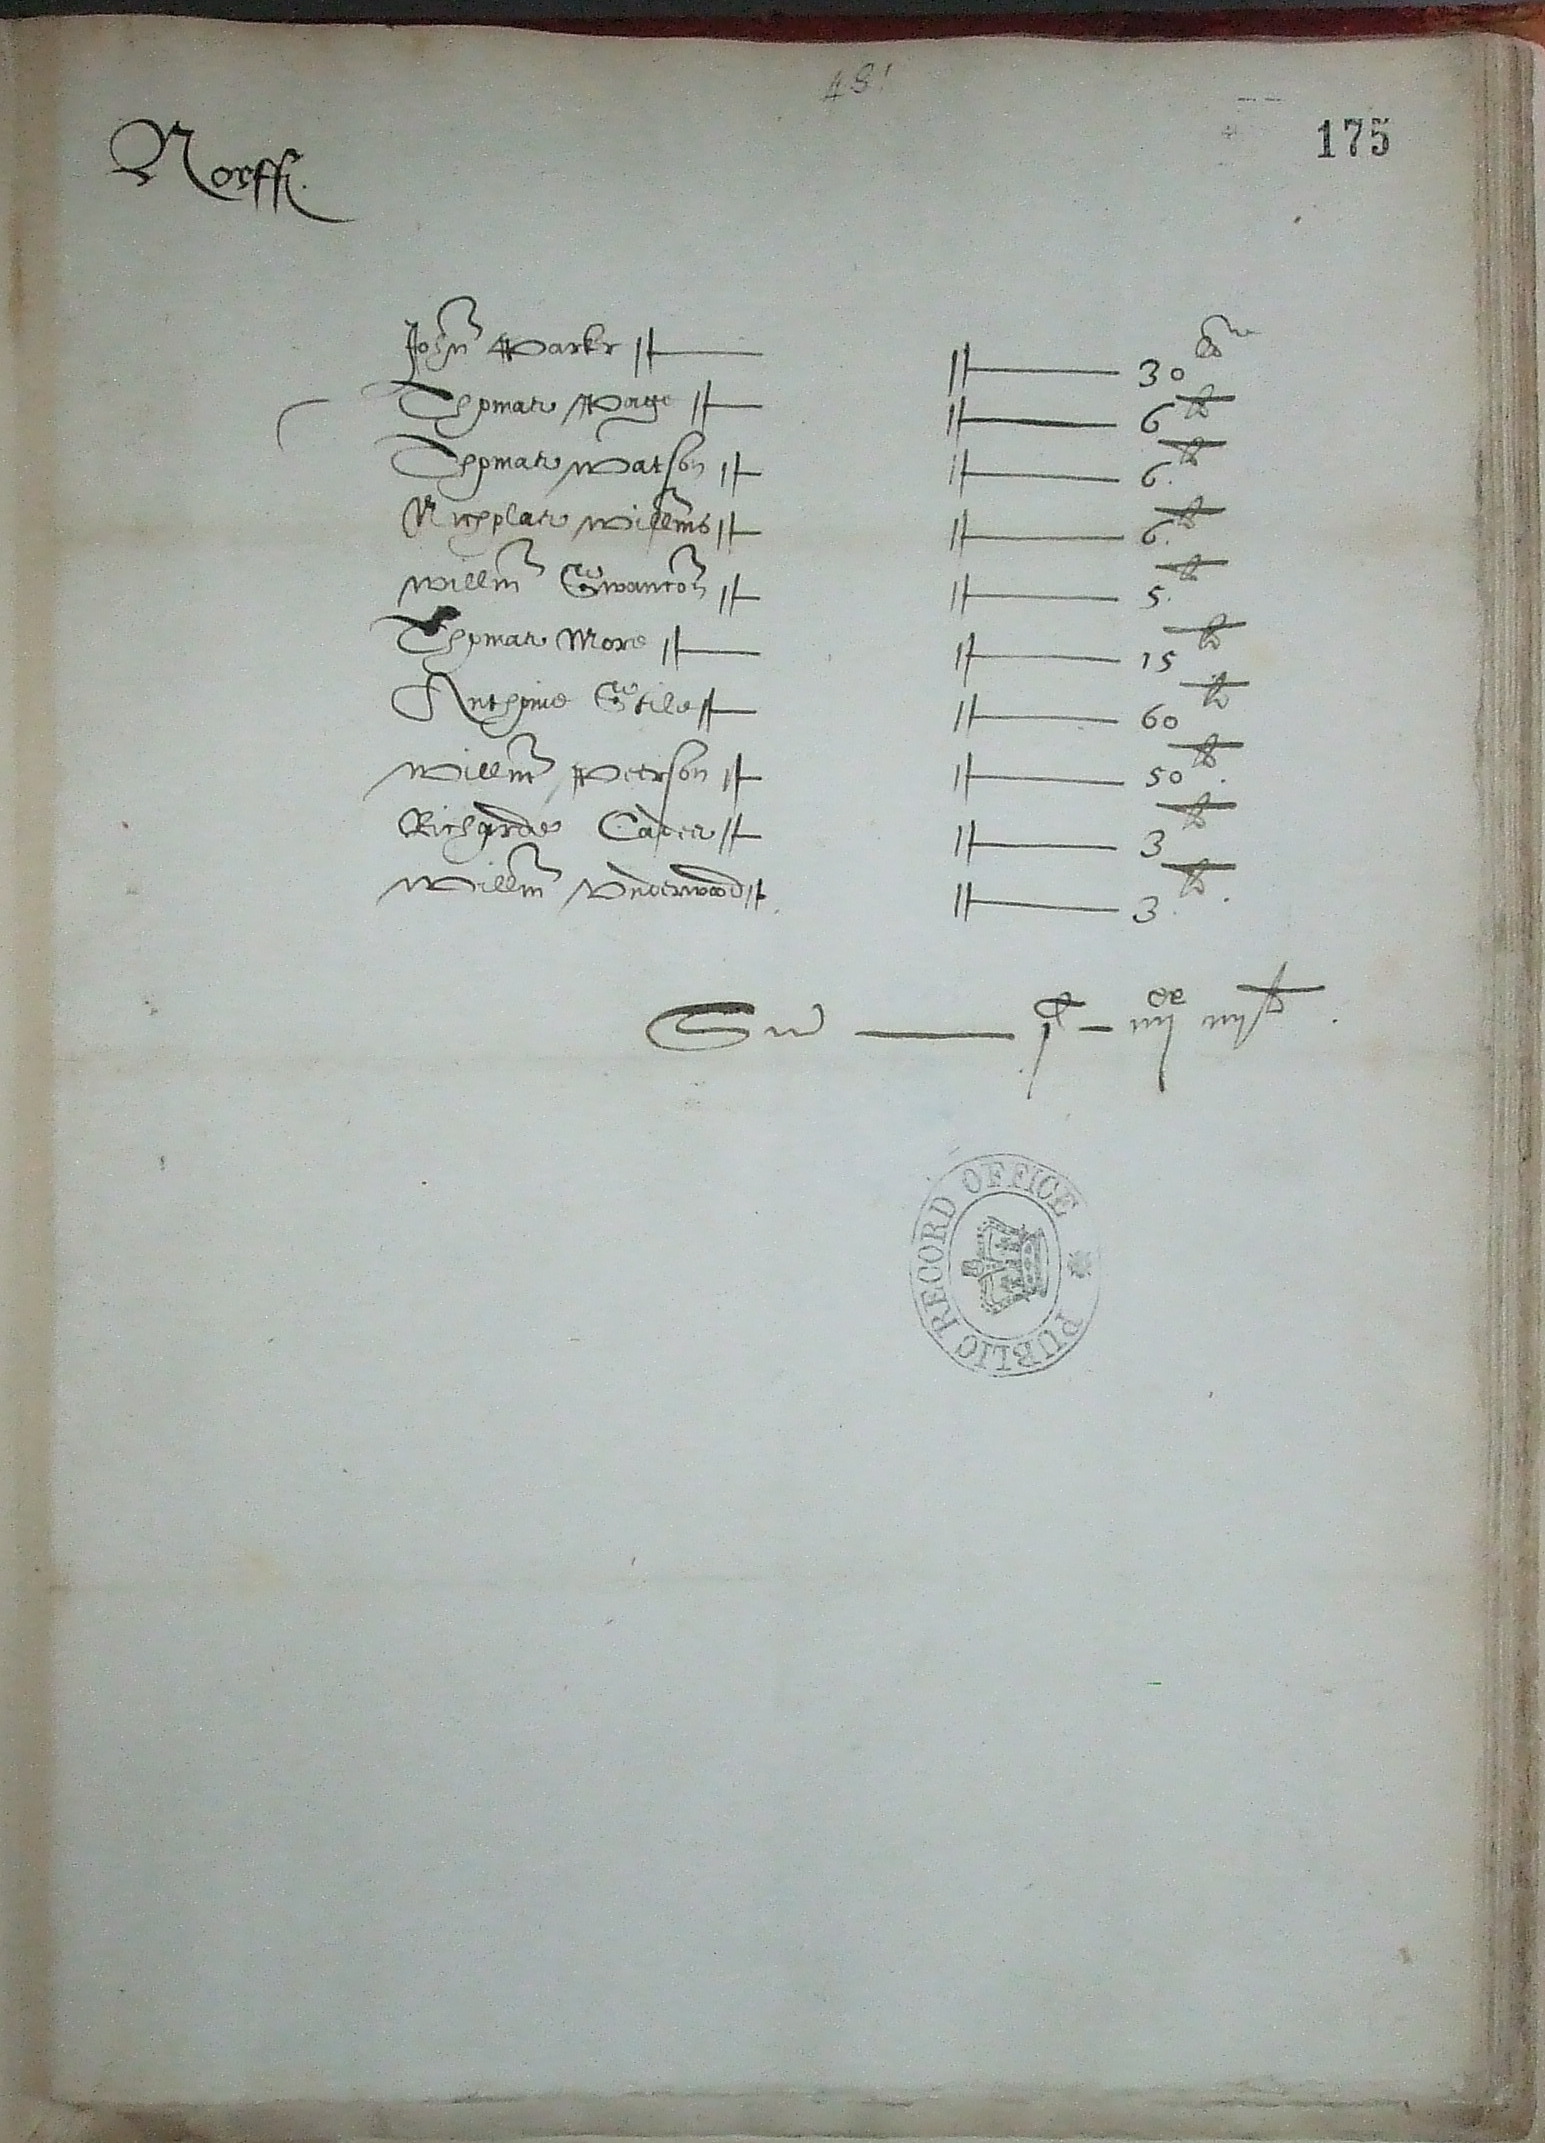 48!
175
Norff.
John Parkr 30
Thomas Page 6 li
Thomas Watson 6 li
Nicholas Willms 6 li
Willm Swanton 5 li
Thomas More 15 li
Anthonie Stile 60 li
Willm Peterson 50 li
Richarde Cater 3 li
Willm Underwood 3 li
Sm C iiij xx iiij li
PUBLIC RECORD OFFICE